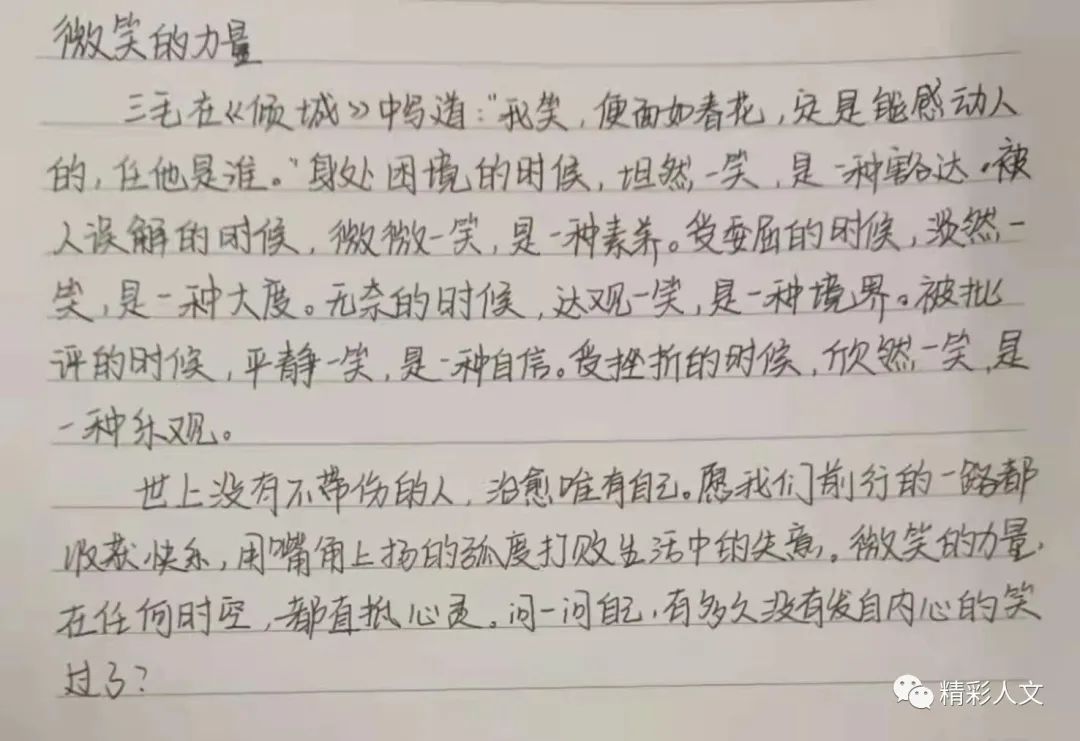 微笑的力量
三毛在《倾城》中写道："我笑，便面如春花，定是能感动人
的，任他是谁。"身处困境的时候，坦然一笑，是一种豁达。被
人误解的时候，微微一笑，是一种素养。受委屈的时候，淡然一
笑，是一种大度。无奈的时候，达观一笑，是一种境界。被批
评的时候，平静一笑，是一种自信。受挫折的时候，欣然一笑，是
一种乐观。
世上没有不带伤的人，治愈唯有自己。愿我们前行的一路都
收获快乐，用嘴角上扬的弧度打败生活中的失意。微笑的力量，
在任何时空，都直抵心灵。问一问自己，有多久没有发自内心的笑
过了？
精彩人文